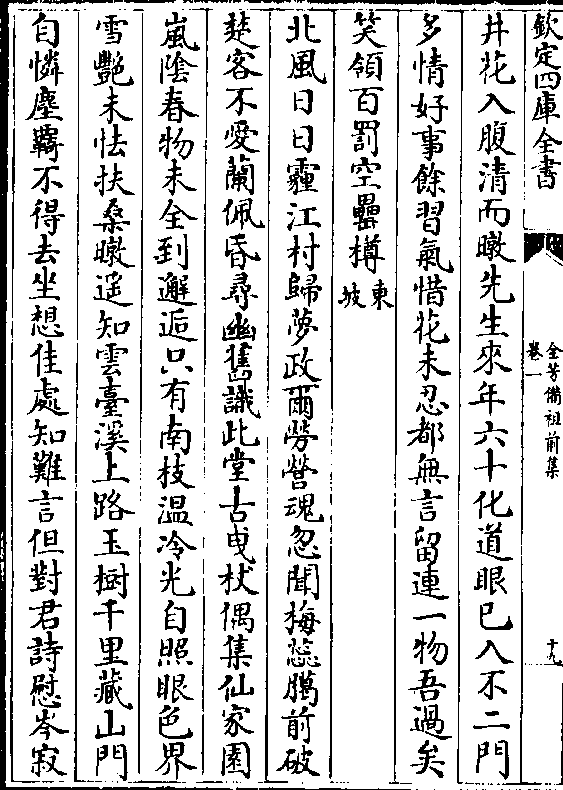 欽定四庫全書
全芳備祖前集
卷一
十九
井花入腹清而暾先生來年六十化道眼已入不二門
多情好事餘習氣惜花未忍都無言留連一物吾過矣
笑領百罰空罍樽東坡
北風日日霾江村歸夢政爾勞營魂忽聞梅蕊臘前破
楚客不愛蘭佩昏尋幽舊識此堂古曳杖偶集仙家園
嵐陰春物未全到邂逅只有南枝溫冷光自照眼色界
雪艷未怯扶桑暾遥知雲臺溪上路玉樹千里藏山門
自憐塵羇不得去坐想佳處知難言但對君詩慰岑寂